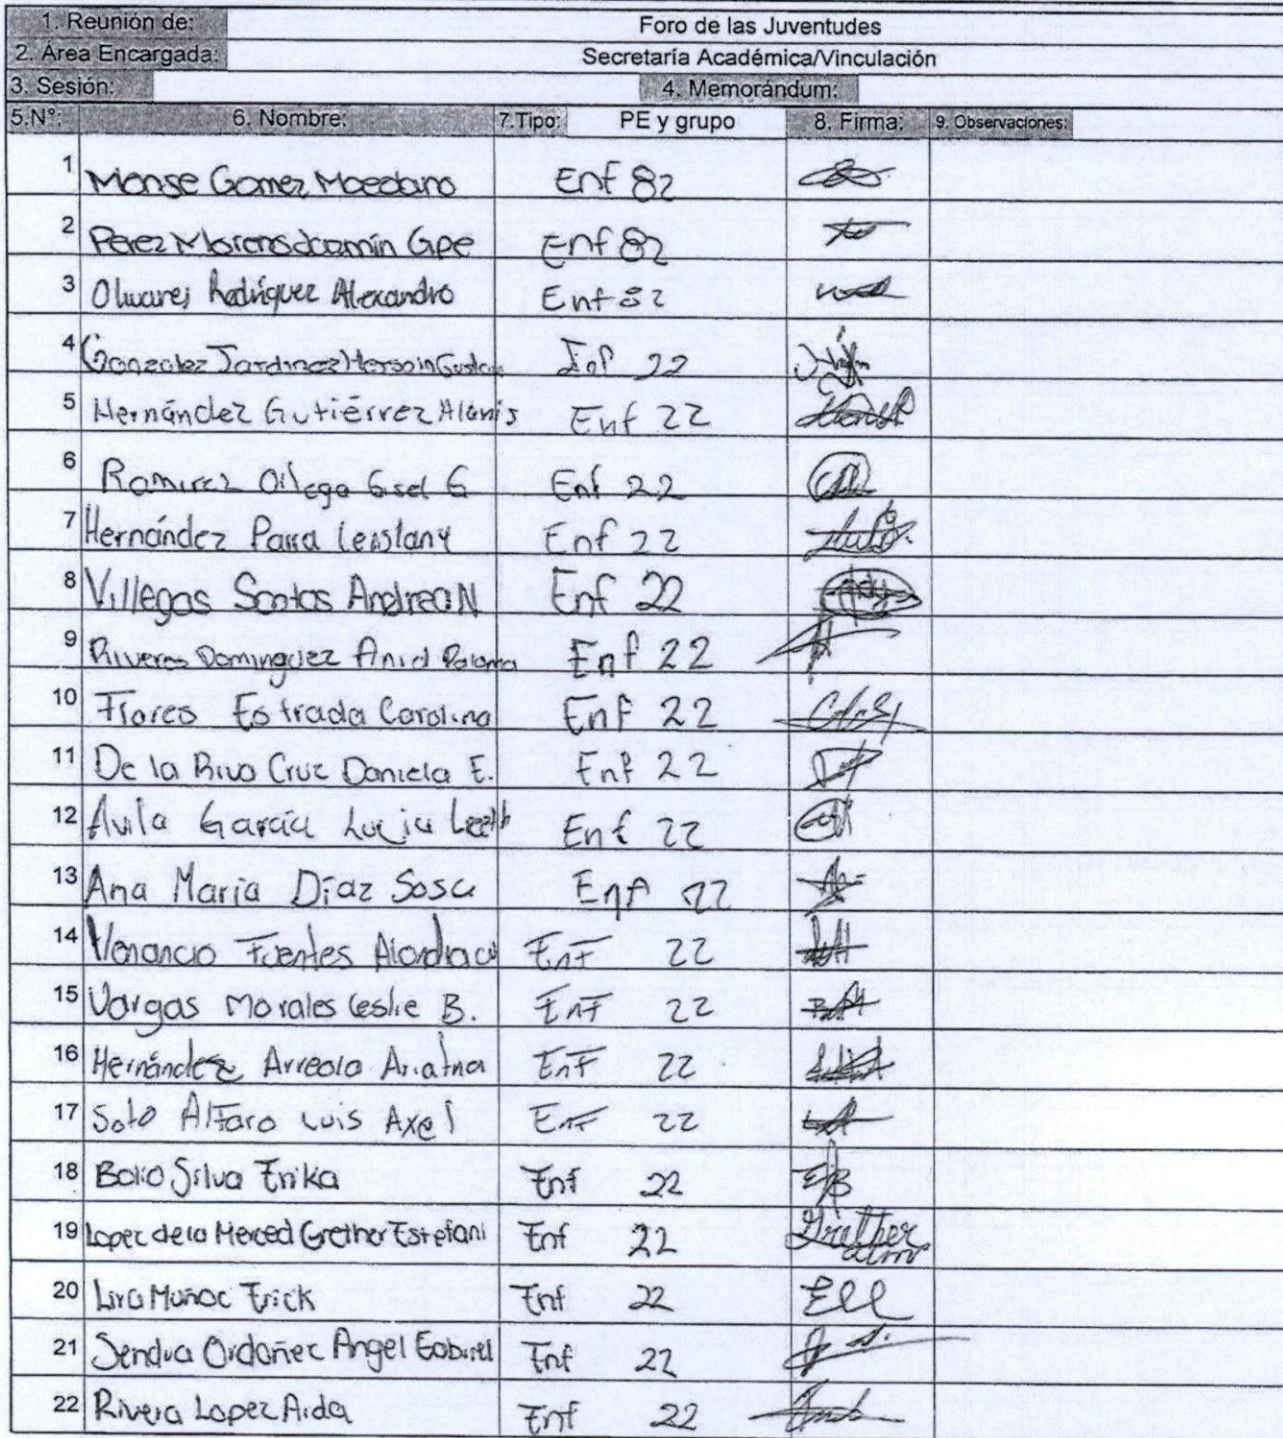 1. Reunión de: Foro de las Juventudes
2. Área Encargada: Secretaría Académica/Vinculación
3. Sesión: 4. Memorándum:
5.N°: 6. Nombre: 7.Tipo: PE y grupo 8. Firma: 9. Observaciones:
1 Monse Gomez Moedano Enf 82
2 Perez Moreno Gpe Enf 82
3 Olivares Rodríguez Alexandro Enf 82
4 Gonzalez Jardinez Enf 22
5 Hernández Gutiérrez Alanis Enf 22
6 Ramirez Ortega Gisel G Enf 22
7 Hernández Parra Leislany Enf 22
8 Villegas Santos Andrea N Enf 22
9 Riveros Dominguez Paloma Enf 22
10 Flores Estrada Carolina Enf 22
11 De la Riva Cruz Daniela E. Enf 22
12 Avila García Lucia Enf 22
13 Ana María Díaz Sosa Enf 22
14 Venancio Fuentes Enf 22
15 Vargas Morales Leslie B. Enf 22
16 Hernández Arreola Ariatna Enf 22
17 Soto Alfaro Luis Axel Enf 22
18 Silva Erika Enf 22 EJB
19 Lopez de la Merced Grether Estefani Enf 22 Grether
20 Lira Muñoz Erick Enf 22 Ell
21 Ordoñez Angel Gabriel Enf 22
22 Rivera Lopez Aida Enf 22